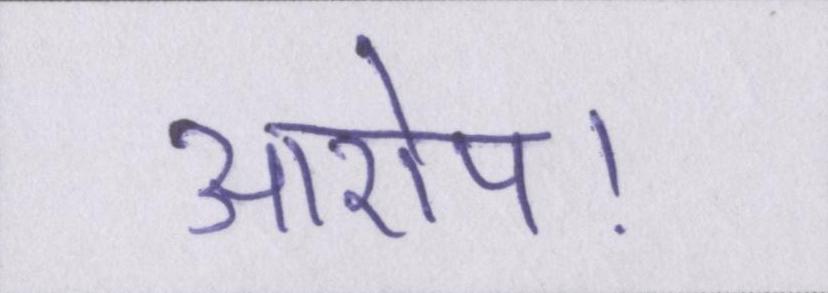 आरोप!